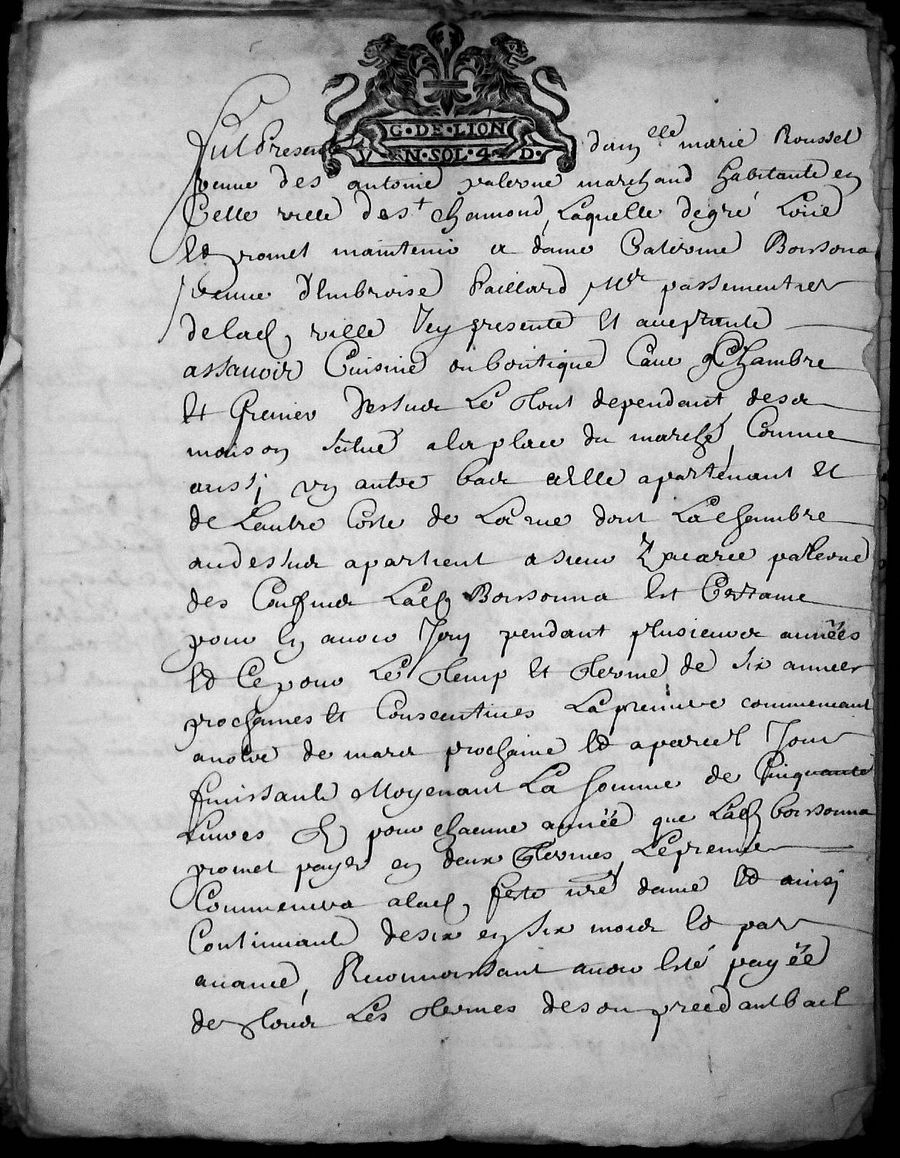 G·DE·LION
V·EN·SOL·4·D·
Fut Presente dam^lle marie Roussel
veuve des antoine palerne marchand habitante en
Cette ville de s^t chamond, Laquelle de gré Loue
Et promet maintenir a dame Caterine Boissona
veuve d'Embroise Paillard M^r passementier
de lad ville Icy presente Et aceptante
assauoir Cuisine ou boutique Caue Chambre
Et Grenier dessus Le tout dependant de sa
maison Situé a la place du marché, Comme
aussi vn autre bas a Elle apartenant Et
de Lautre Costé de La rue dont La chambre
au dessus apartient a sieur Zacarie palerne
des Lad Boissonna Est Certaine
pour En auoir Jouy pendant plusieurs années
Et Ce pour Le temp Et terme de Six années
prochaines Et Consecutiues La premiere commencant
a de mars prochaine Et a pareil Jour
finissante Moyenant La Somme de Cinquante
Liures pour chacune année que Lad boissonna
promet payer en deux termes, Le premier
Commencera a lad feste n^re dame Et ainsi
Continuant de six en Six mois Et par
auance, Reconnoissant auoir Esté payée
de tous Les termes de son precedant bail